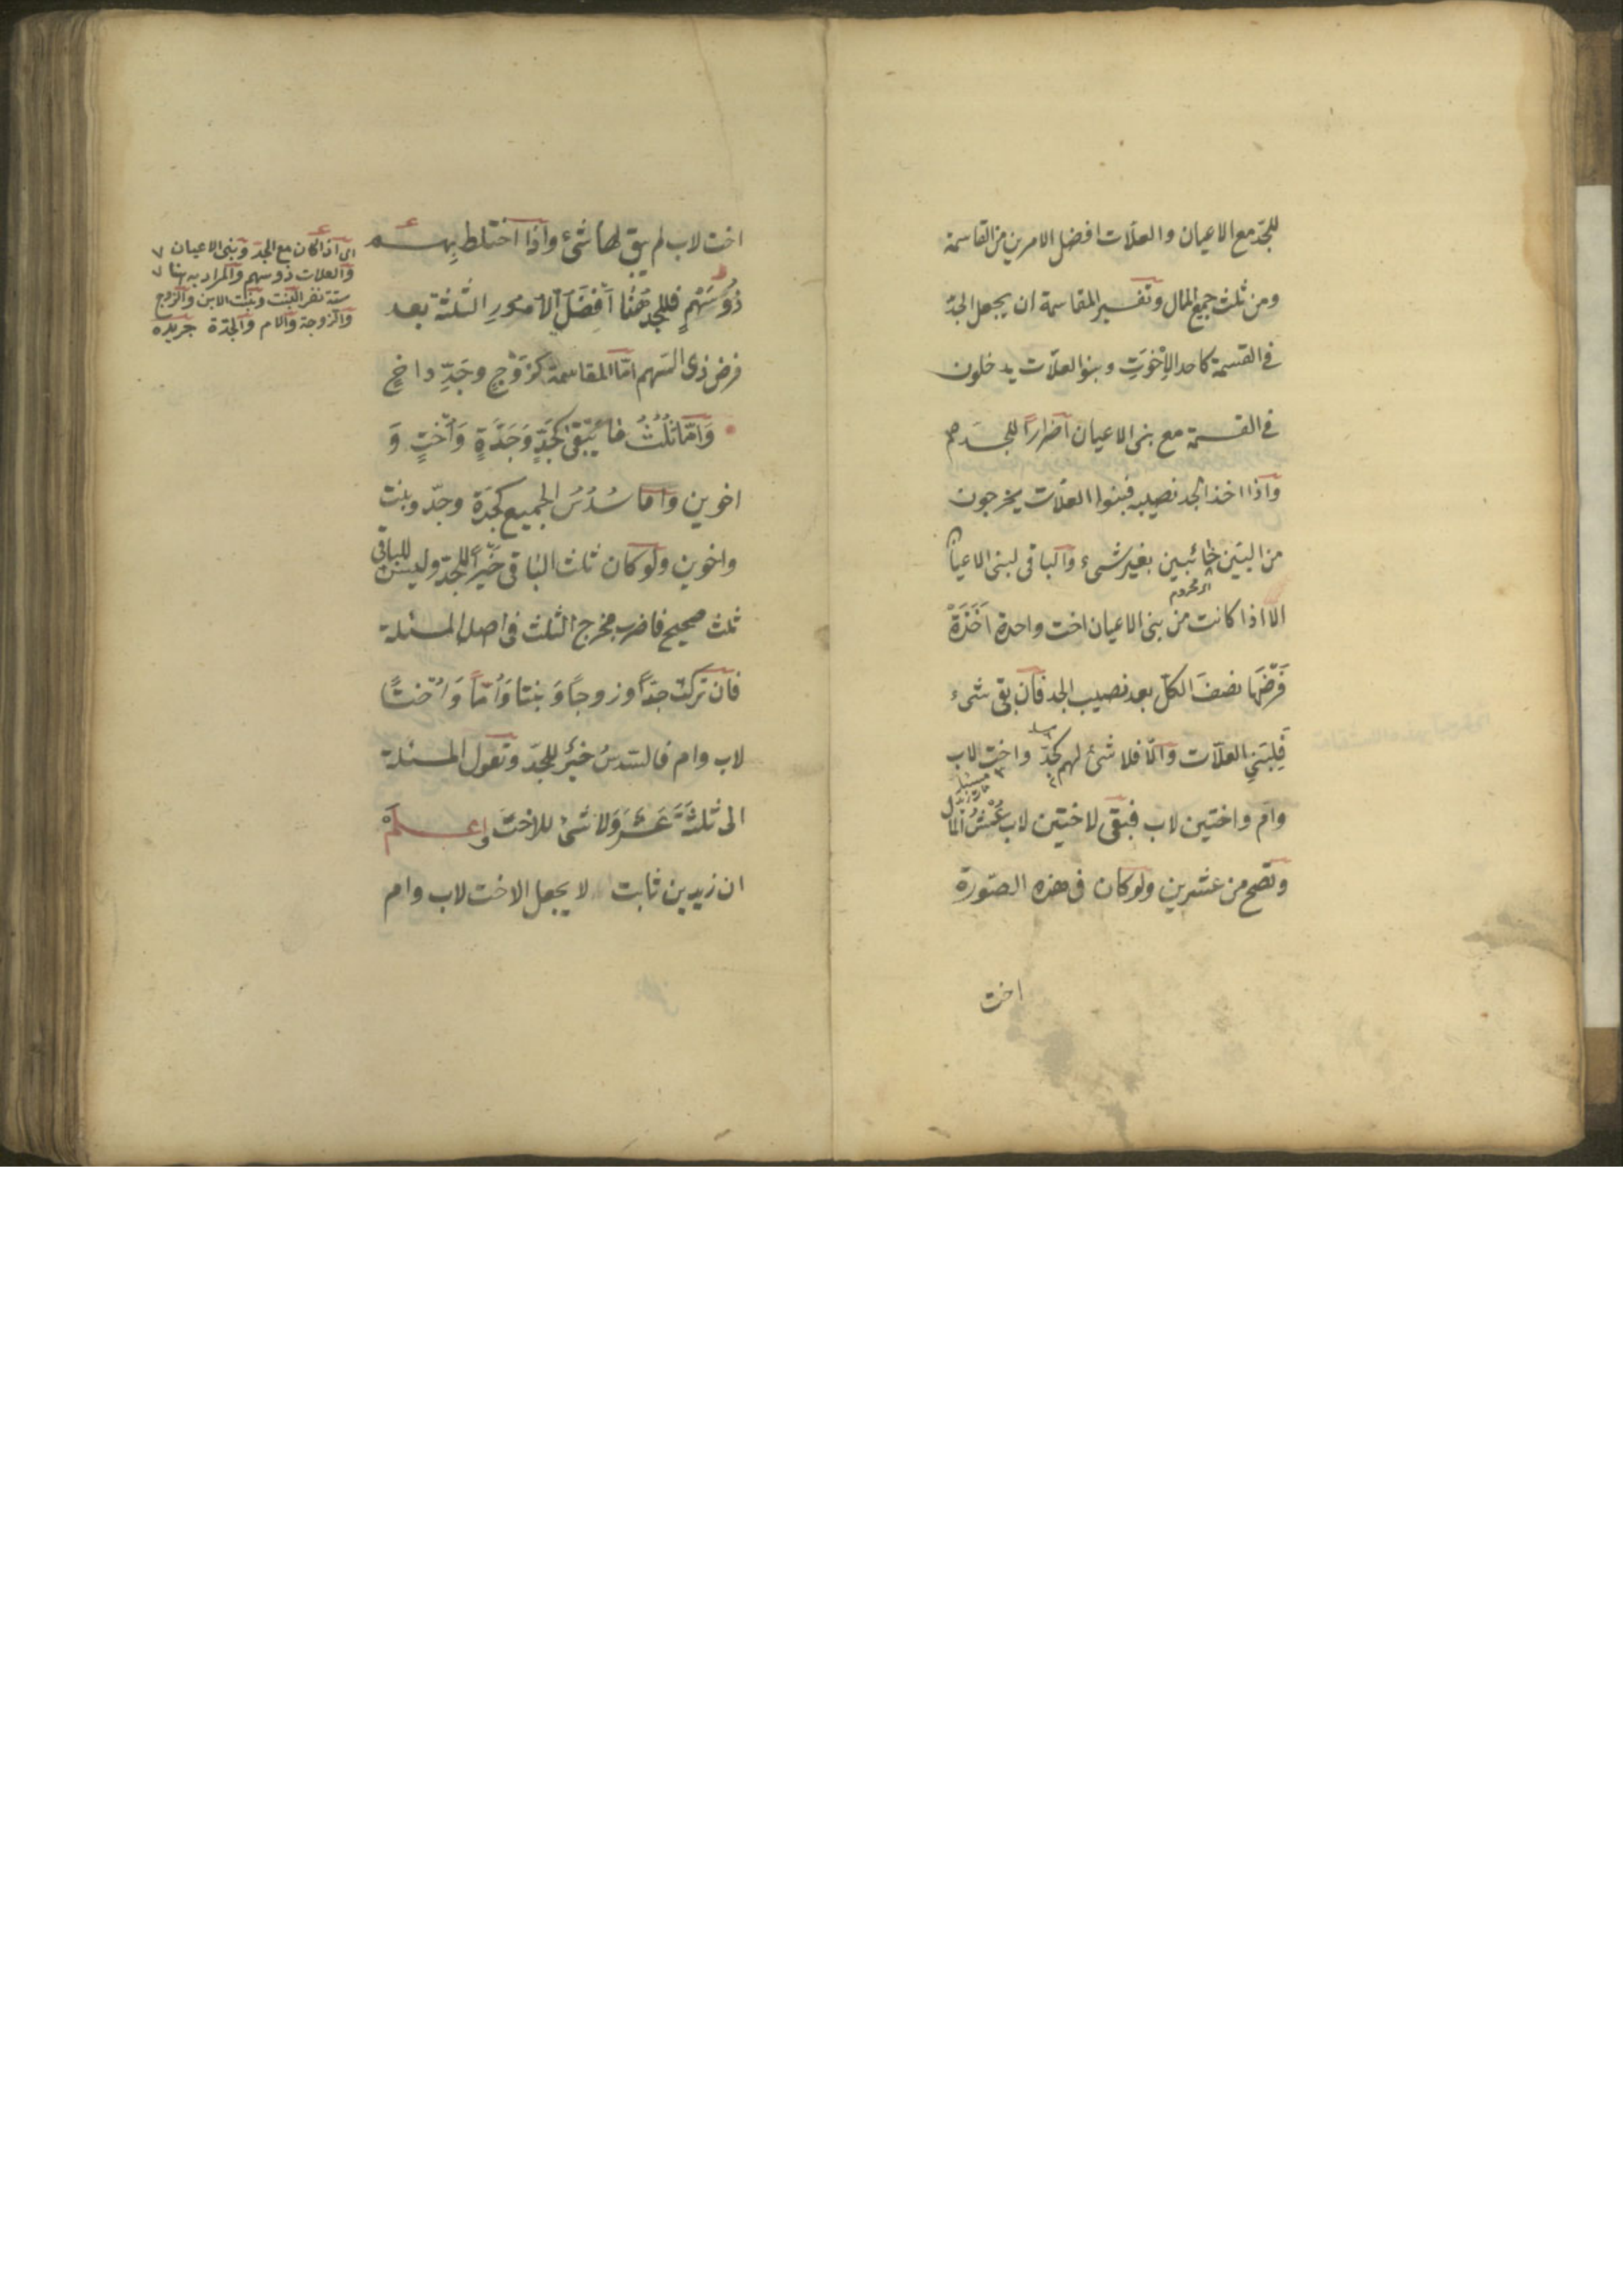 للجدّ مع الاعيان والعلّات افضل الامرين من القاسمة
ومن ثلث جميع المال وتفسير المقاسمة ان يجعل الجدّ
فى القسمة كاحد الاِخْوَتِ وبنو العلّات يدخلون
فى القسمة مع بنى الاعيان اضرارًا للجدهم
واذا اخذ الجد نصيبه فبنوا العلّات يخرجون
من البَين خائبين بغير شىء والباقى لبنى الاعيان
اى محروم
الا اذا كانت من بنى الاعيان اخت واحدة اَخَذَتْ
فَرْضَهَا نصفَ الكلّ بعد نصيب الجد فان بقى شىء
فِلِبَنِى العلّات والّا فلا شئ لهم كجدّ واخت لاب
وام واختين لاب فبقى لاختين لاب عُشْرُ المال
وتصح من عشرين ولو كان فى هذه الصّورة
اخت
اخت لاب لم يبق لها شئ واذا اختلط بِهم
ذُوسَهْمٍ فللجد هٰهُنَا اَفْضَلُ الاُمُورِ الثلثة بعد
فرض ذى السّهم امّا المقاسمة كزَوْجٍ وجَدِّ واخٍ
وَامّا ثُلُثُ مَا يَبْقٰى كَجَدٍّ وَجَدَّةٍ وَاُخْتٍ وَ
اخوين وَامّا سُدُسُ الجميع كجَدّة وجدّ وبنت
واخوين ولو كان ثلث الباقى خَيْراً للجدّ وليس للباقى
ثلث صحيح فاضرب مخرج الثلث فى اصل المسئلة
فان تركت جدّاً وزوجاً وَبنتا وَاُمّاً وَاُخْتًا
لاب وام فالسّدسُ خيْرٌ للجدّ وتعول المسئلة
الى ثلثَةَ عَشَرَ وَلا شئ للاخت واعلم
ان زيد بن ثابت لا يجعل الاخت لاب وام
اى اذا كان مع الجدّ وبنى الاعيان
والعلات ذو سهم والمراد به هنا
ستة نفر البنت وبنت الابن والزوج
والزوجة والام والجدّة جريده